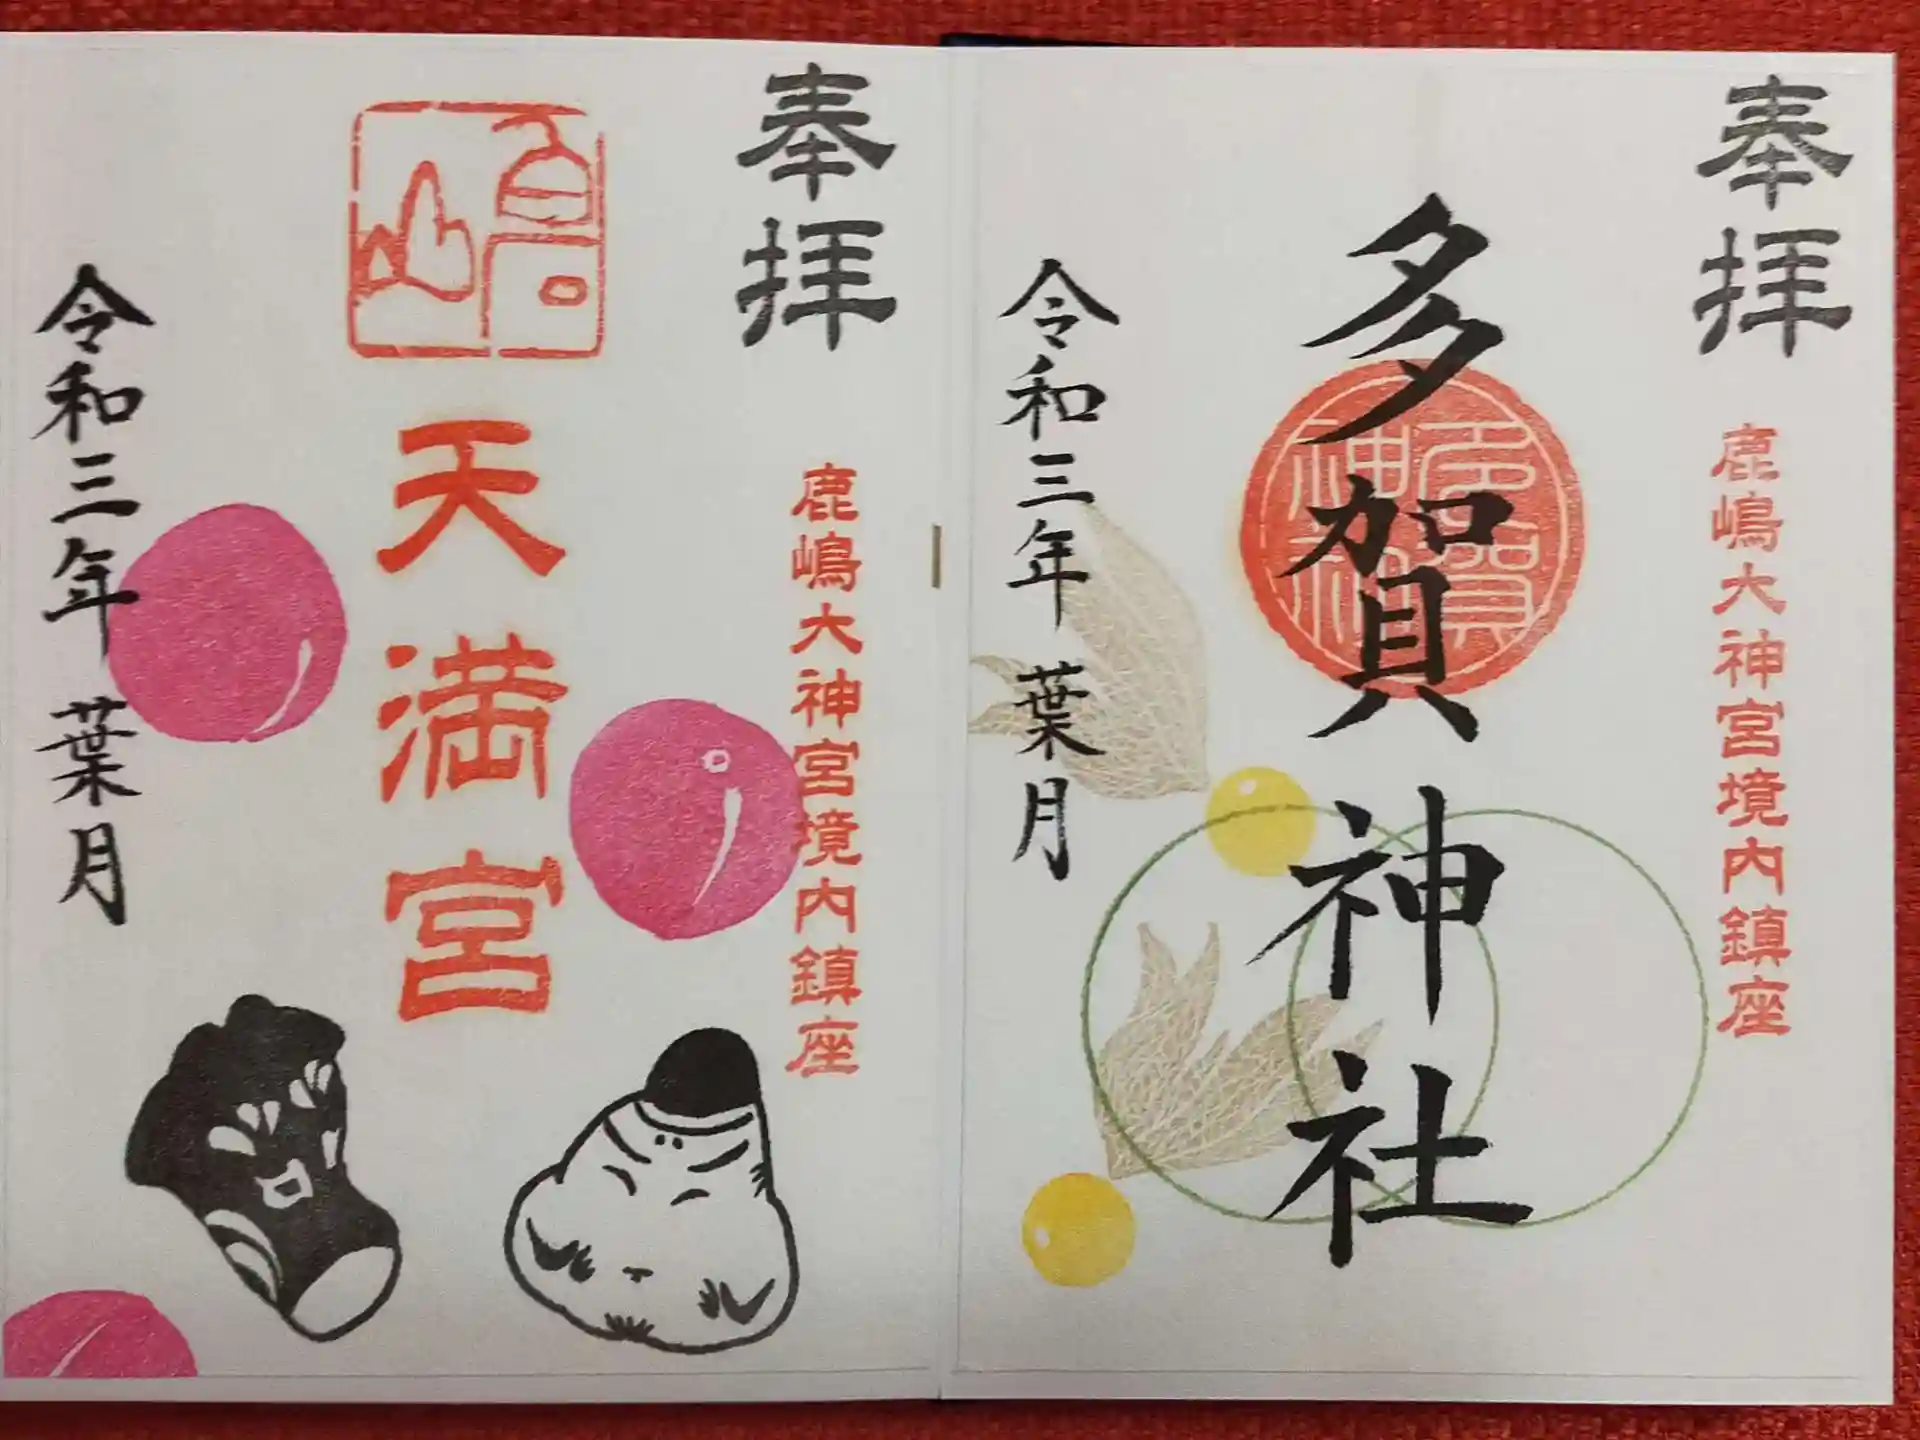 奉拝
鹿嶋大神宮境内鎮座
多賀神社
多賀神社
令和三年 葉月
奉拝
鹿嶋大神宮境内鎮座
天満宮
令和三年 葉月